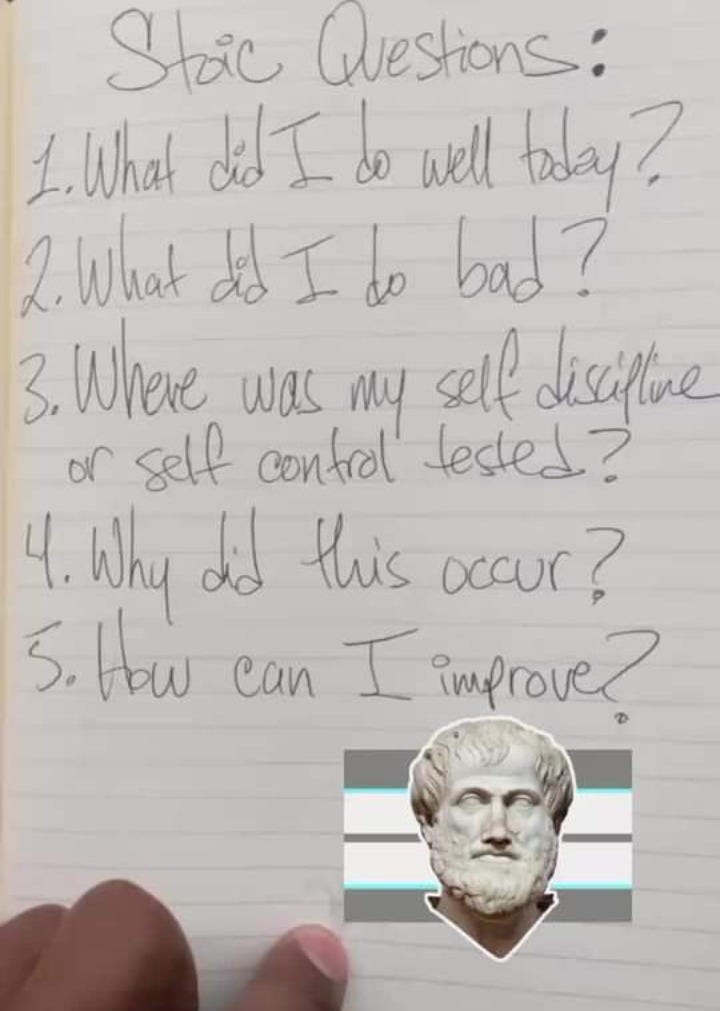 Stoic Questions:
1. What did I do well today?
2. What did I do bad?
3. Where was my self discipline
or self control tested?
4. Why did this occur?
5. How can I improve?